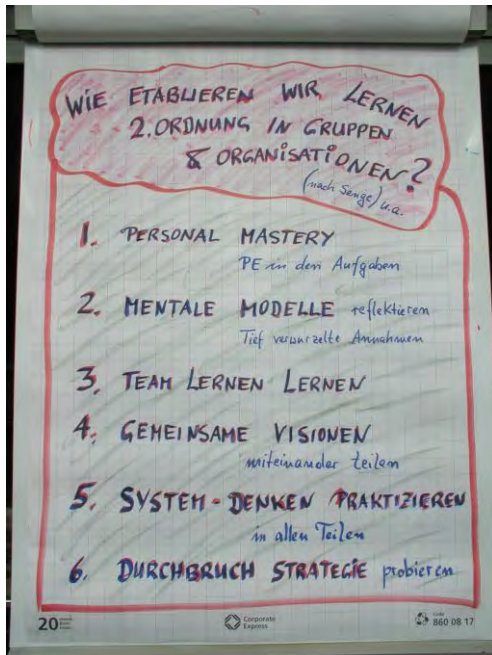 WIE ETABLIEREN WIR LERNEN
2. ORDNUNG IN GRUPPEN
& ORGANISATIONEN?
(nach Senge) u.a.
1. PERSONAL MASTERY
PE in den Aufgaben
2. MENTALE MODELLE reflektieren
Tief verwurzelte Annahmen
3. TEAM LERNEN LERNEN
4. GEMEINSAME VISIONEN
miteinander teilen
5. SYSTEM-DENKEN PRAKTIZIEREN
in allen Teilen
6. DURCHBRUCH STRATEGIE probieren
20
Corporate
Express
860 08 17